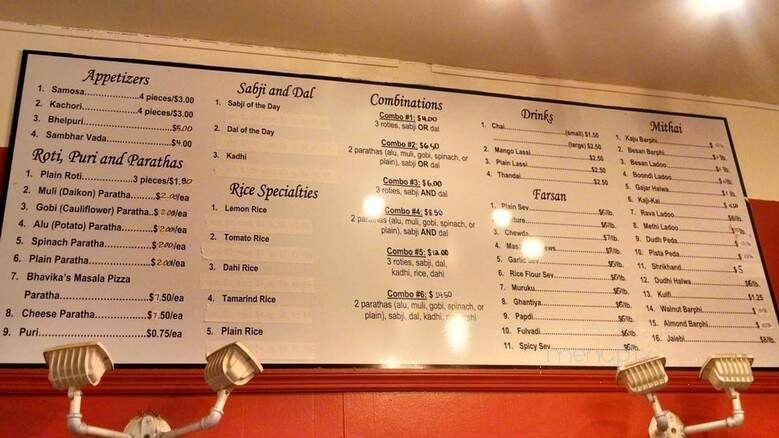 Appetizers
1. Samosa...................4 pieces/$3.00
2. Kachori...................4 pieces/$3.00
3. Bhelpuri..............................$5.00
4. Sambhar Vada.....................$4.00
Roti, Puri and Parathas
1. Plain Roti................3 pieces/$1.80
2. Muli (Daikon) Paratha...$2.00/ea
3. Gobi (Cauliflower) Paratha..$2.00/ea
4. Alu (Potato) Paratha.......$2.00/ea
5. Spinach Paratha............$2.00/ea
6. Plain Paratha.................$2.00/ea
7. Bhavika's Masala Pizza
Paratha............................$7.50/ea
8. Cheese Paratha.............$7.50/ea
9. Puri..................................$0.75/ea
Sabji and Dal
1. Sabji of the Day
2. Dal of the Day
3. Kadhi
Rice Specialties
1. Lemon Rice
2. Tomato Rice
3. Dahi Rice
4. Tamarind Rice
5. Plain Rice
Combinations
Combo #1: $4.00
3 roties, sabji OR dal
Combo #2: $6.50
2 parathas (alu, muli, gobi, spinach, or
plain), sabji OR dal
Combo #3: $6.00
3 roties, sabji AND dal
Combo #4: $8.50
2 parathas (alu, muli, gobi, spinach, or
plain), sabji AND dal
Combo #5: $12.00
3 roties, sabji, dal,
kadhi, rice, dahi
Combo #6: $14.50
2 parathas (alu, muli, gobi, spinach, or
plain), sabji, dal, kadhi,
Drinks
1. Chai......................(small) $1.50
(large) $2.50
2. Mango Lassi.....................$2.50
3. Plain Lassi.......................$2.50
4. Thandai............................$2.50
Farsan
1. Plain Sev.........................$6/lb.
2.
3. Chewda...........................$7/lb.
4.
5. Garlic Sev........................$6/lb.
6. Rice Flour Sev..................$6/lb.
7. Muruku............................$6/lb.
8. Ghantiya..........................$6/lb.
9. Papdi...............................$6/lb.
10. Fulvadi...........................$6/lb.
11. Spicy Sev.......................$6/lb.
Mithai
1. Kaju Barphi
2. Besan Barphi
3. Besan Ladoo
4. Boondi Ladoo
5. Gajar Halwa
6. Kaju-Kai
7. Rava Ladoo
8. Methi Ladoo
9. Dudh Peda
10. Pista Peda
11. Shrikhand
12. Dudhi Halwa
13. Kulfi..............................$1.25
14. Walnut Barphi
15. Almond Barphi
16. Jalebi............................$8/lb.